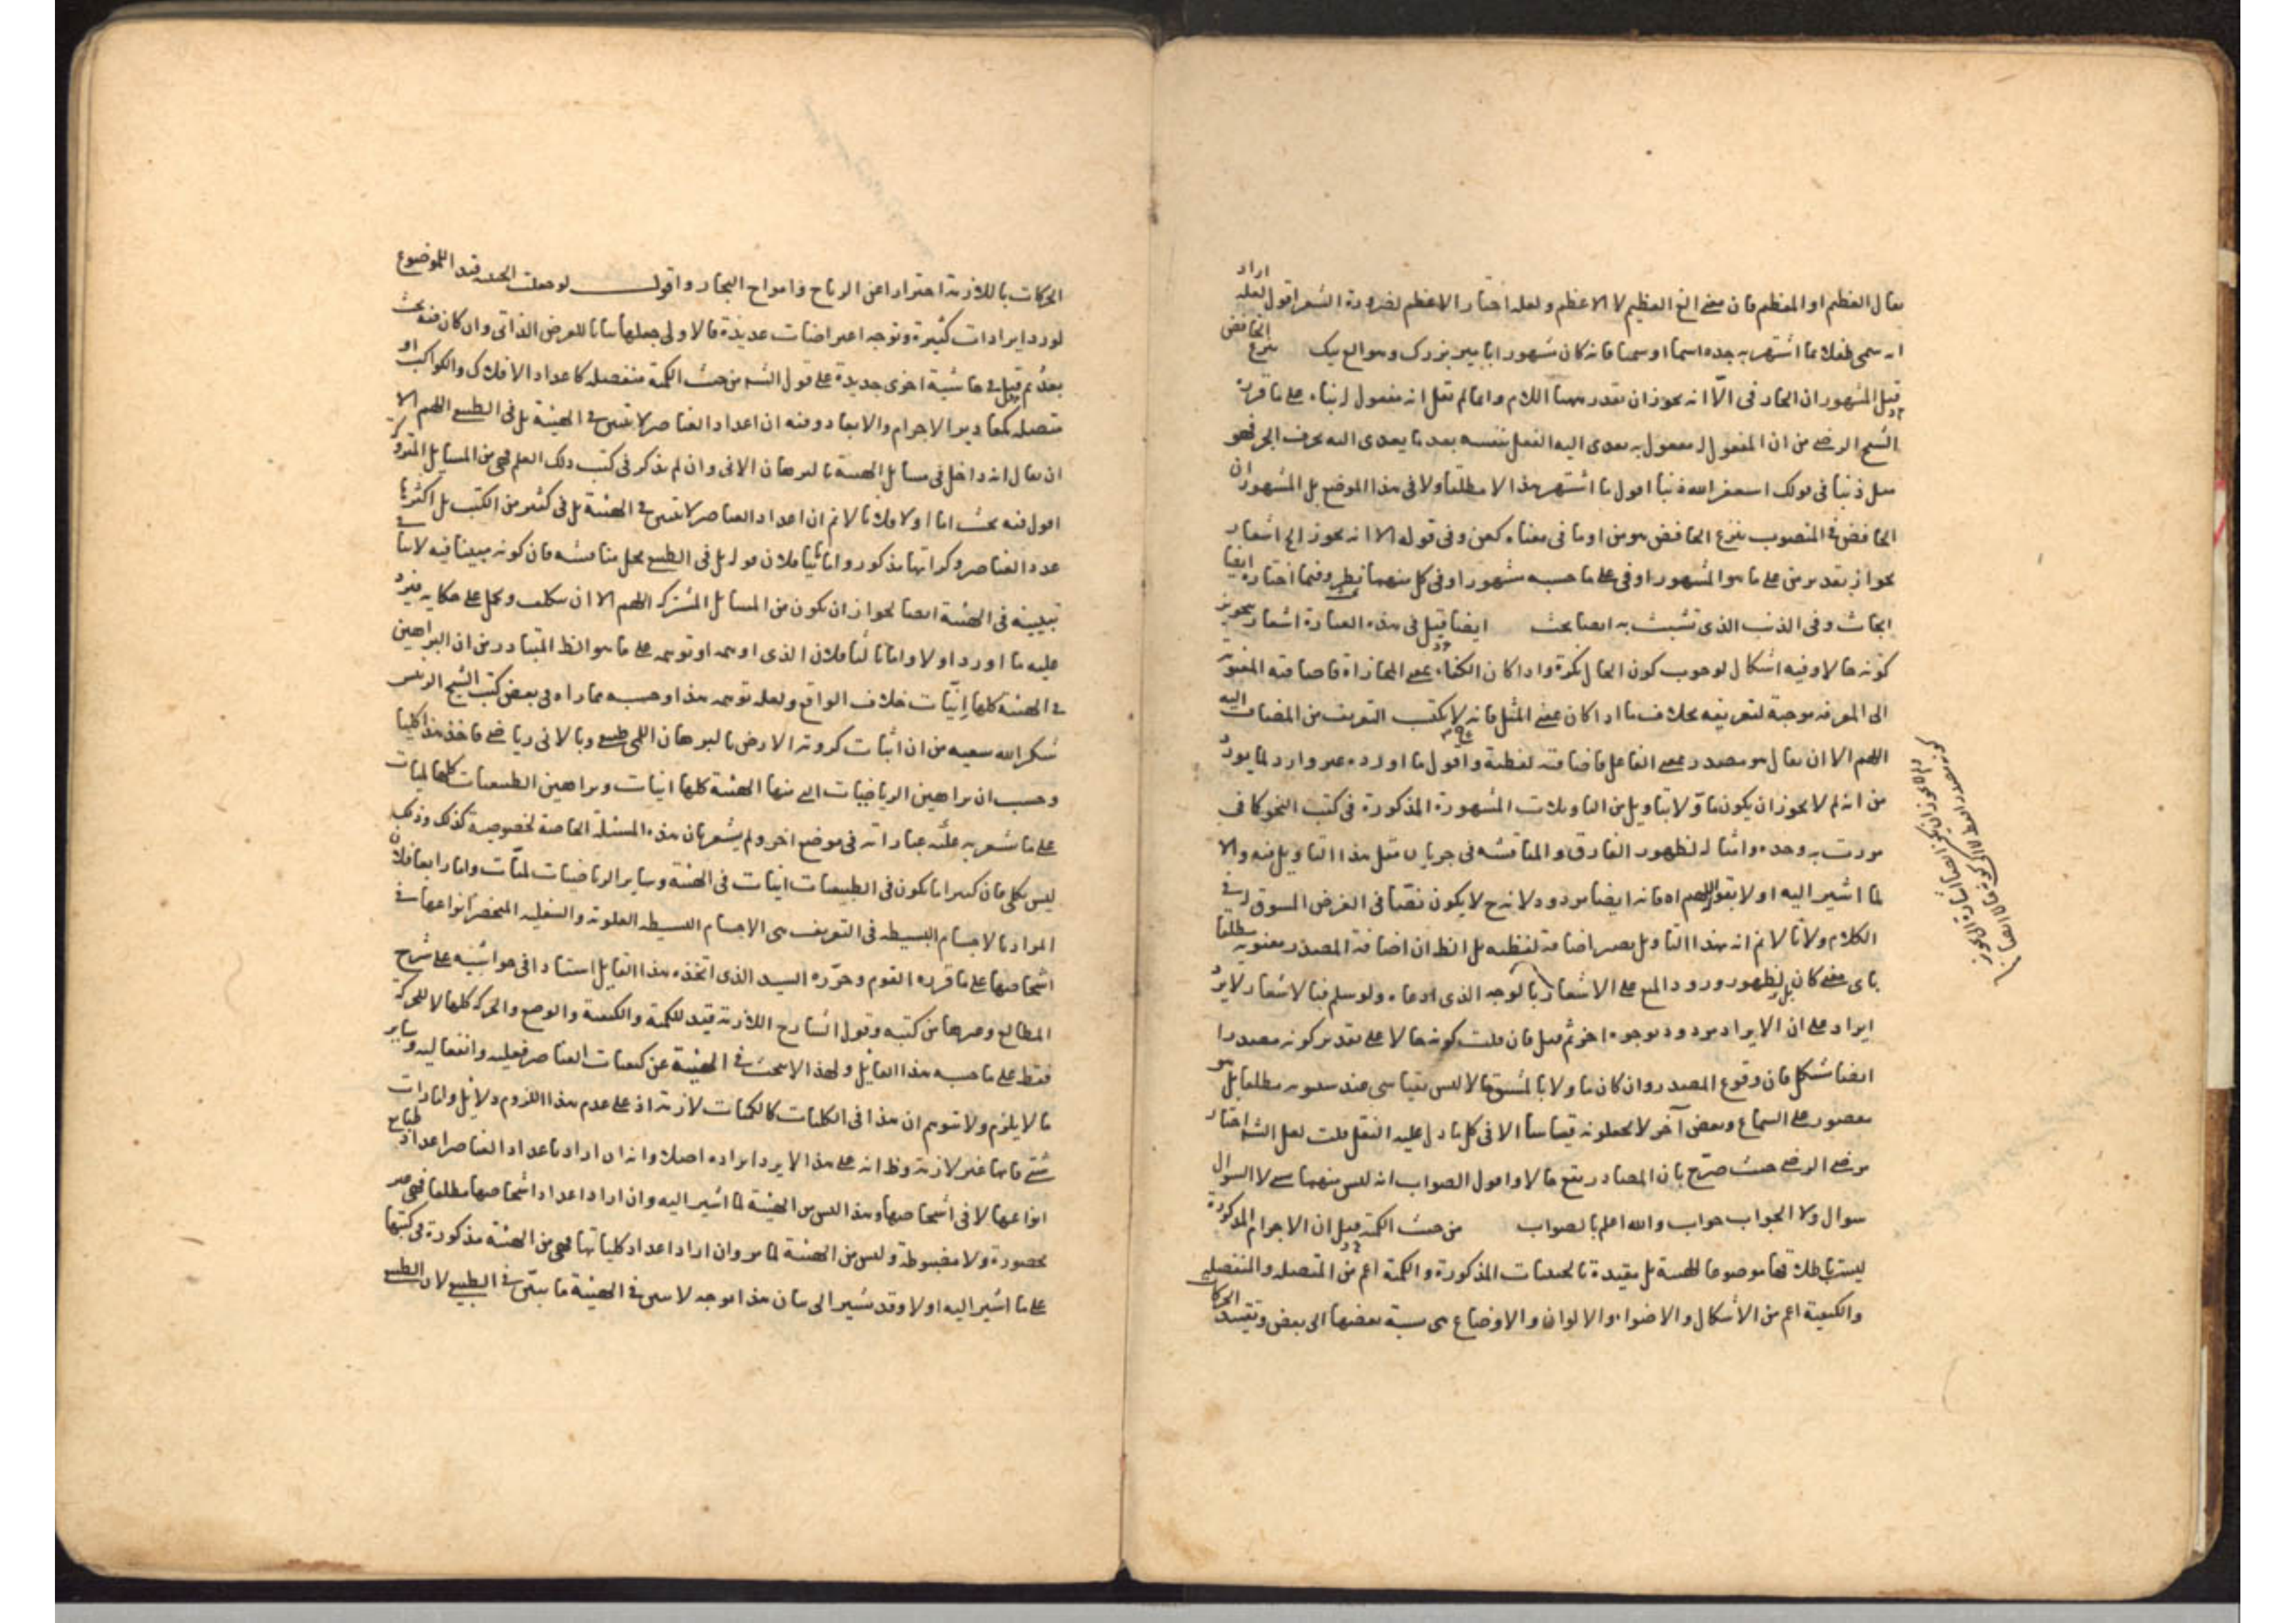 يقال العظيم او المعظم فان معنى الغ العظيم لا الاعظم ولعله اختار الاعظم لضرورة الشعر اقول لعله اراد
انه سمى طفلا بما اشتهر به جده اسما او سمعا فانه كان شهورا بامير بزرك وهو الغ بيك بنزع الخافض
قيل المشهور ان الجار في الا انه يجوز ان يقدر ههنا اللام وانما لم يقل انه مفعول له بناء على ما قرره
الشيخ الرضى من ان المفعول له مفعول به يعدى اليه الفعل بنفسه بعد ما يعدى اليه بحرف الجر فهو
مثل ذنبا في قولك استغفر الله ذنبا اقول ما اشتهر هذا لا مطلقا ولا في هذا الموضع بل المشهور ان
الخافض في المنصوب بنزع الخافض هو من او ما في معناه كعن وفي قوله الا انه يجوز الخ اشعار
بجواز تقدير من على ما هو المشهور او في على ما حسبه مشهورا وفي كل منهما نظر وفيما اختاره ايضا
ابحاث وفي الذنب الذى تشبث به ايضا بحث ايضا قيل في هذه العبارة اشعار بتجويز
كونه حالا وفيه اشكال لوجوب كون الحال نكرة واذا كان الكفاء بمعنى المجازاة فاضافته المعنوية
الى المعرفة موجبة لتعريفه بخلاف ما اذا كان بمعنى المثل فانه لا يكتسب التعريف من المضاف اليه
اللهم الا ان يقال هو مصدر بمعنى الفاعل فاضافته لفظية واقول ما اورده غير وارد لما يرد
من انه لم لا يجوز ان يكون مأولا بتأويل من التاويلات المشهورة المذكورة في كتب النحو كاف
مررت به وحده وامثاله لظهور الفارق والمناقشة في جريان مثل هذا التاويل فيه والا
لما اشير اليه اولا بقوله اللهم اه فانه ايضا مردود لانه ح لا يكون نصا في الغرض المسوق له في
الكلام ولانا لا نم انه بهذا التاويل يصير اضافة لفظية بل الظ ان اضافة المصدر معنوية مطلقا
باى معنى كان بل لظهور ورود المنع على الاشعار بالوجه الذى ادعاه ولو سلم فبالاشعار لا يرد
ايراد على ان الايراد مردود بوجوه اخر ثم قيل فان قلت كونه حالا على تقدير كونه مصدرا
ايضا مشكل فان وقوع المصدر وان كان مأولا بالمشتق حالا ليس بقياسى عند سيبويه مطلقا بل هو
مقصور على السماع وبعض آخر لا يجعلونه قياسا الا في كل ما دل عليه الفعل قلت لعل الشه اختار
مرضى الرضى حيث صرح بان المصادر يقع حالا واقول الصواب انه ليس منهما شىء لا السوال
سوال ولا الجواب جواب والله اعلم بالصواب من حيث الكمية قيل ان الاجرام المذكورة
ليست باطلاقها موضوعا للهيئة بل مقيدة بالحيثيات المذكورة والكمية اعم من المتصلة والمنفصلة
والكيفية اعم من الأشكال والاضواء والالوان والاوضاع هى نسبة بعضها الى بعض وتقييد الحركات
الحركات باللازمة احترازا عن الرياح وامواج البحار واقول لو جعلت الحيثية قيد الموضوع
لورد ايرادات كثيرة وتوجه اعتراضات عديدة فالاولى جعلها بيانا للعرض الذاتى وان كان فيه بحث
بعد ثم قيل في حاشية اخرى جديدة على قول الشه من حيث الكمية منفصلة كاعداد الافلاك والكواكب او
متصلة كمقادير الاجرام والابعاد وفيه ان اعداد العناصر لا تبين في الهيئة بل في الطبيعى اللهم الا
ان يقال انه داخل في مسائل الهيئة بالبرهان الانى وان لم يذكر في كتب ذلك العلم فهى من المسايل المتروكة
اقول فيه بحث اما اولا فلانا لا نم ان اعداد العناصر لا تبين في الهيئة بل في كثير من الكتب بل اكثرها
عدد العناصر وكراتها مذكور واما ثانيا فلان قوله بل في الطبيعى محل مناقشة فان كونه مبينا فيه لا ينافى
تبيينه في الهيئة ايضا لجواز ان يكون من المسائل المشتركة اللهم الا ان يتكلف ويحمل على حكاية فيرد
عليه ما اورد اولا واما ثالثا فلان الذى اوهمه او توهمه على ما هو الظ المتبادر من ان البراهين
في الهيئة كلها انيات خلاف الواقع ولعله توهم هذا وحسبه مما راه في بعض كتب الشيخ الرئيس
شكر الله سعيه من ان اثبات كروية الارض بالبرهان اللمى طبيعى وبالانى رياضى فاخذ هذا كليا
وحسب ان براهين الرياضيات التى منها الهيئة كلها انيات وبراهين الطبيعيات كلها لميات
على ما يشعر به عليه عباراته في موضع اخر ولم يشعر بان هذه المسئلة الخاصة لخصوصية كذلك وذلك
ليس بكلى فان كثيرا ما يكون في الطبيعيات انيات في الهيئة وساير الرياضيات لميات واما رابعا فلان
المراد بالاجسام البسيطة في التعريف هى الاجسام البسيطة العلوية والسفلية المنحصر انواعها في
اشخاصها على ما قرره القوم وحرره السيد الذى اتخذه هذا القايل استادا في حواشيه على شرح
المطالع وغيرها من كتبه وقول الشارح اللازمة قيد للكمية والكيفية والوضع والحركة كلها لا للحركة
فقط على ما حسبه هذا القايل ولهذا لا يبحث في الهيئة عن كيفيات العناصر فعلية وانفعالية وساير
ما لا يلزم ولا تتوهم ان هذا في الكليات كالكميات لازمة اذ على عدم هذا اللزوم دلائل وامارات
شتى فانها غير لازمة وظ انه على هذا لا يرد ايراده اصلا وانه ان اراد باعداد العناصر اعداد طبايع
انواعها لا في اشخاصها وهذا ليس من الهيئة لما اشير اليه وان اراد اعداد اشخاصها مطلقا فهى غير
محصورة ولا مضبوطة وليس من الهيئة لما مر وان اراد اعداد كلياتها فهى من الهيئة مذكورة في كتبها
على ما اشير اليه اولا وقد نشير الى بيان هذا بوجه لا يبين في الهيئة ما يبين في الطبيعى لان الطبيعى